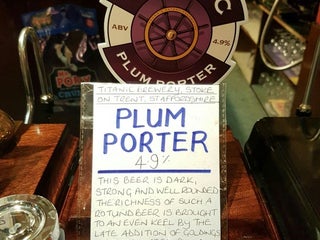 C
ABV
4.9%
PLUM PORTER
TITANIC BREWERY, STOKE
ON TRENT, STAFFORDSHIRE
PLUM
PORTER
4.9%
THIS BEER IS DARK,
STRONG AND WELL ROUNDED
THE RICHNESS OF SUCH A
ROTUND BEER IS BROUGHT
TO AN EVEN KEEL BY THE
LATE ADDITION OF GOLDINGS